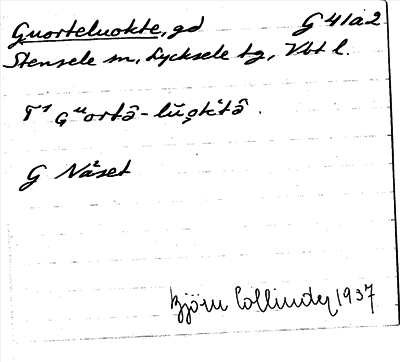 Guorteluokte, gd G 41a2
Stensele sn, Lycksele tg, Vbt l.
G Näset
Björn Collinder 1937